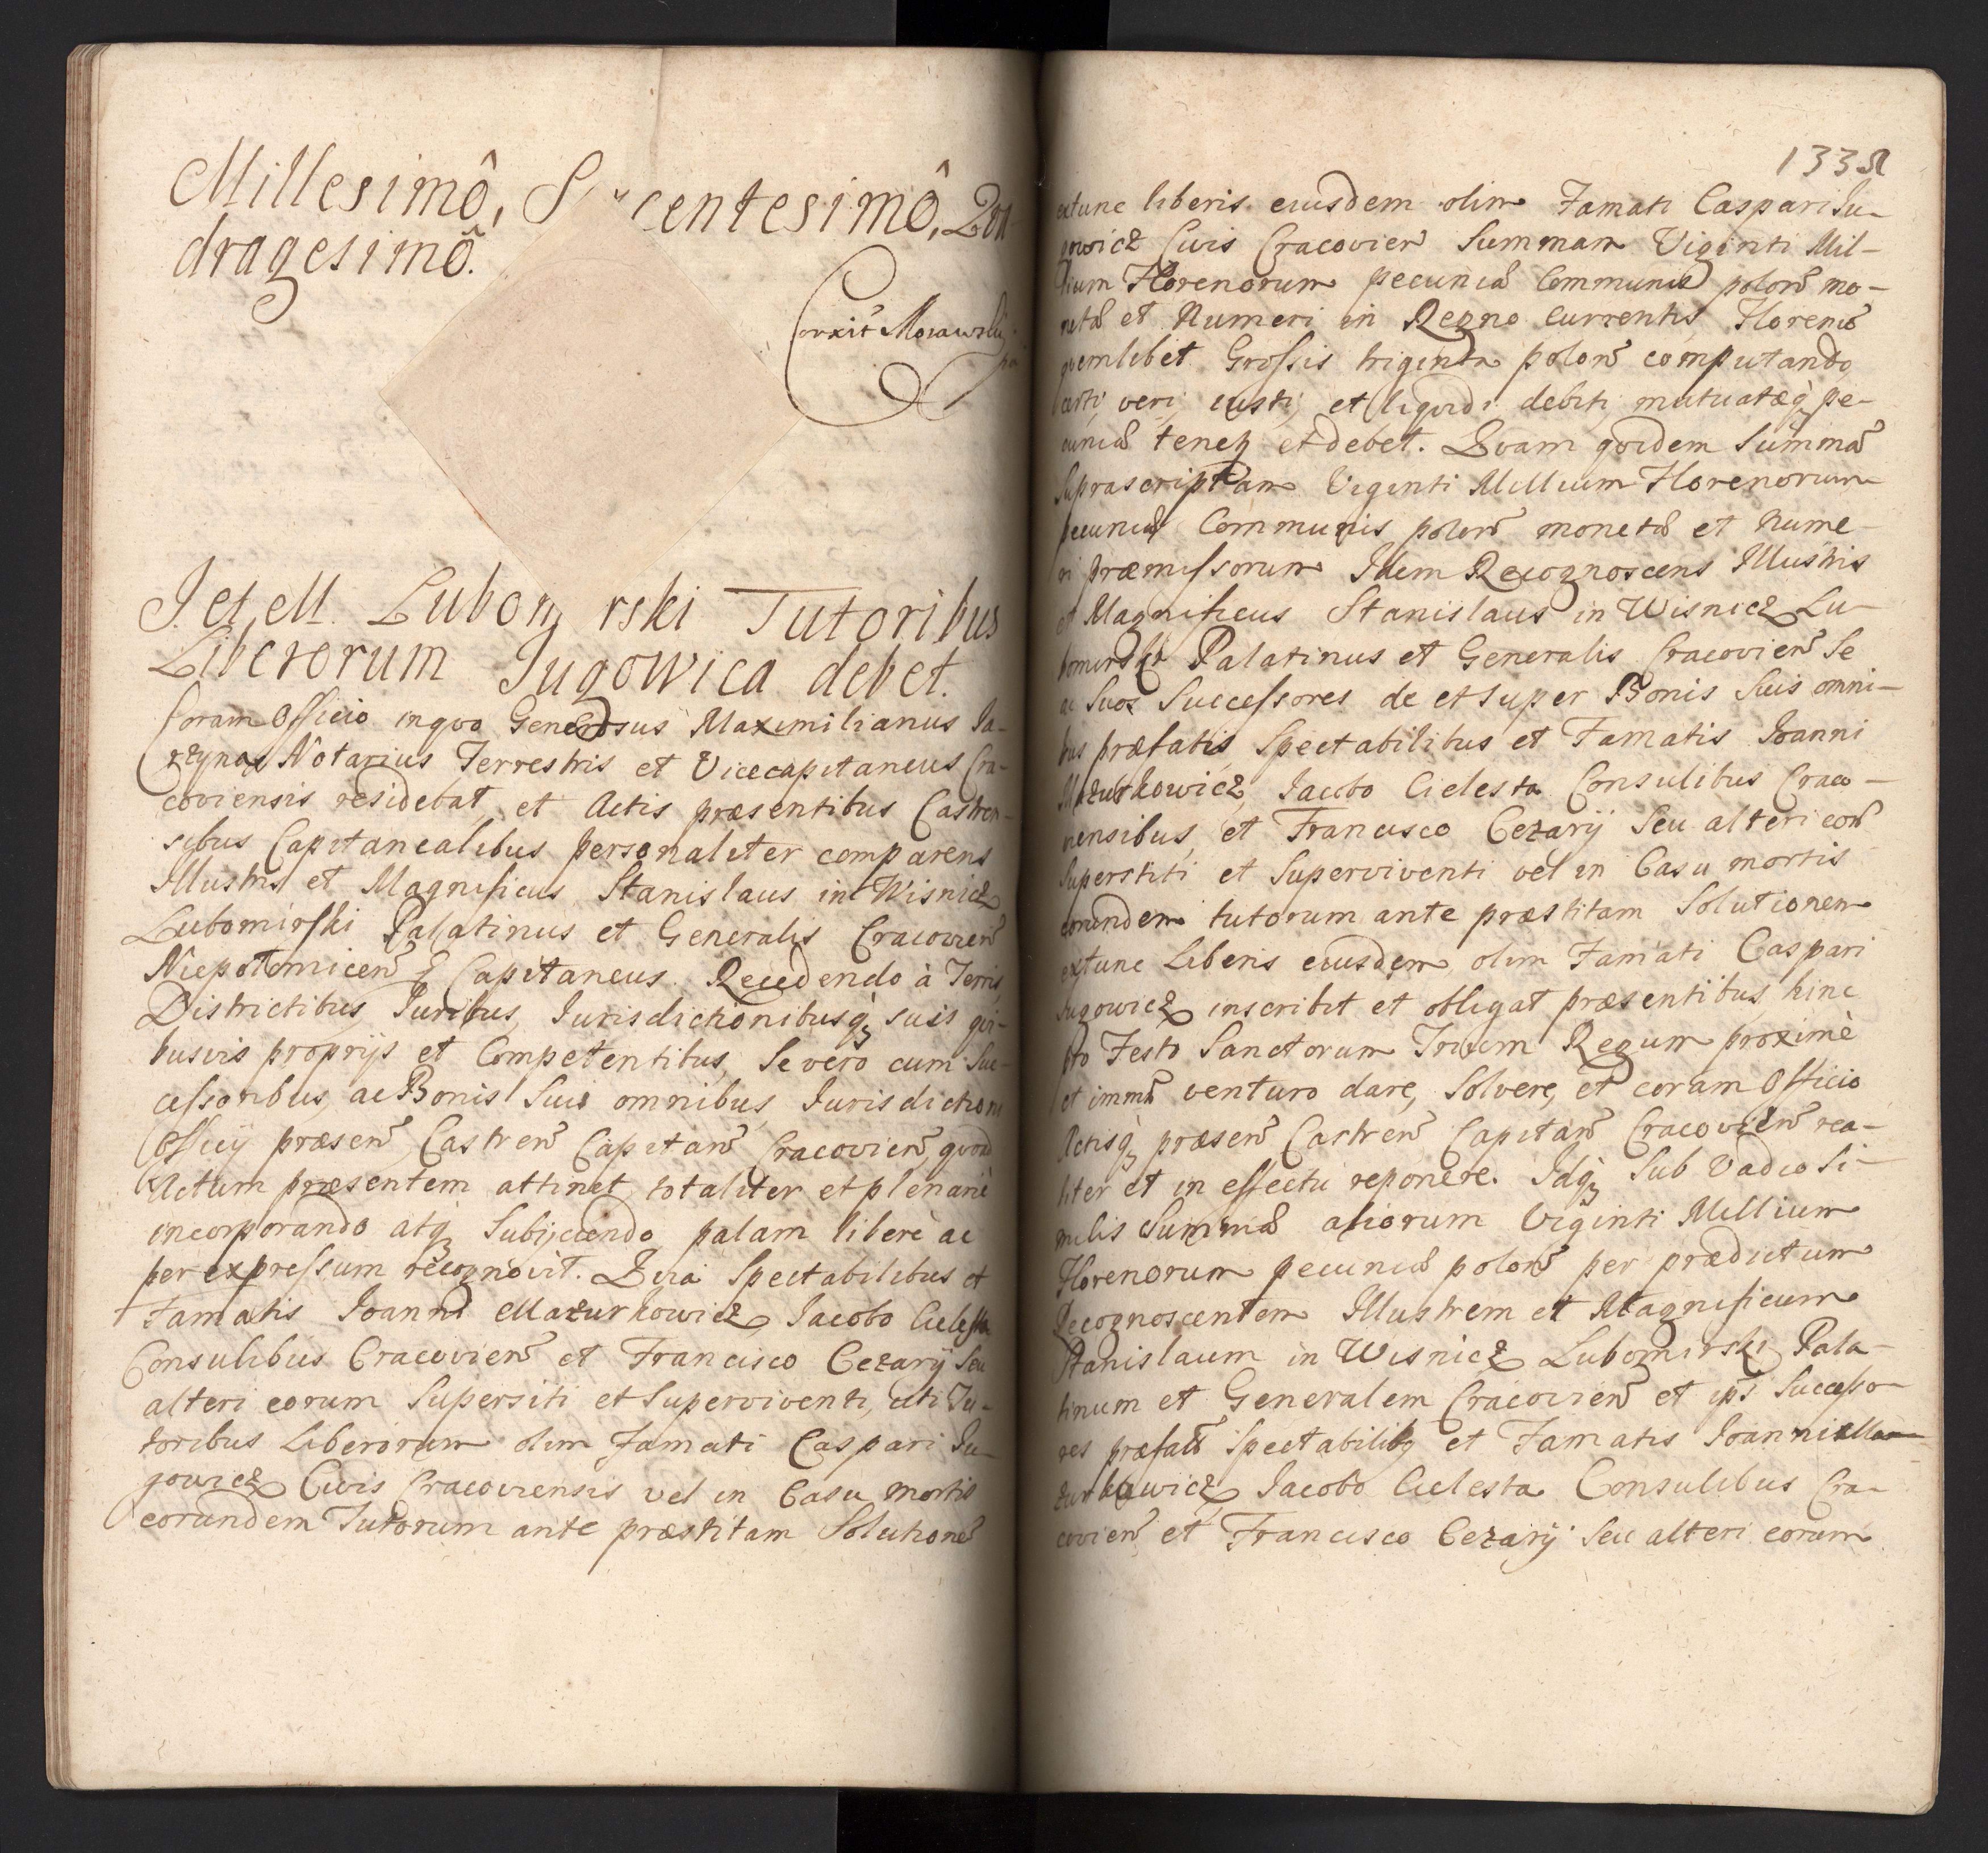 Millesimô, S centesimô, Qua
dragesimô.
Corxit Morawsky
I. et M. Lubom rski Tutoribus
Liberorum Jugowica debet.
Coram Officio in quo Generosus Maximilianus Ja-
rzyna Notarius Terrestris et Vicecapitaneus Cra-
coviensis residebat, et Actis præsentibus Castren-
sibus Capitanealibus personaliter comparens
Illustris et Magnificus Stanislaus in Wisnicz
Lubomirski Palatinus et Generalis Cracovien̄
Niepolomicen̄ Capitaneus. Recedendo à Terris,
Districtibus, Iuribus, Iurisdictionibusq; suis qui-
busvis proprijs et Competentibus, Se vero cum Suc-
cessoribus, ac Bonis Suis omnibus Iurisdictioni
Officij præsen̄ Castren̄ Capitan̄ Cracovien̄, quoad
Actum præsentem attinet, totaliter et plenariè
incorporando atq; Subijciendo palam liberè ac
per expressum recognovit. Quia Spectabilibus et
Famatis Ioanni Mazurkowicz, Iacobo Cielesta
Consulibus Cracovien̄ et Francisco Cezarij Seu
alteri eorum Supersiti et Superviventi, uti Tu-
toribus Liberorum olim famati Caspari Iu-
gowicz Civis Cracoviensis vel in Casu mortis
eorundem Tutorum ante præstitam Solutionē
133
extunc liberis eiusdem olim Famati Caspari Iu-
gowicz Civis Cracovien̄ Summam Viginti Mil-
lium Florenorum pecuniæ Communis polon̄ mo-
netæ et Numeri in Regno Currentis Florenū
quemlibet Grossis triginta polon̄ computando
certi, veri, iusti, et liquidi debiti, mutuatæq; pe-
cuniæ tenetʒ et debet. Quam quidem Summā
Suprascriptam Viginti Millium Florenorum
pecuniæ Communis polon̄ monetæ et Nume-
ri præmissorum Idem Recognoscens Illustris
et Magnificus Stanislaus in Wisnicz Lu-
bomirski Palatinus et Generalis Cracovien̄ Se
ac Suos Successores de et Super Bonis Suis omni-
bus præfatis Spectabilibus et Famatis Ioanni
Mazurkowicz, Iacobo Cielesta Consulibus Craco-
viensibus, et Francisco Cezarij Seu alteri eorū
Superstiti et Superviventi vel in Casu mortis
eorundem tutorum ante præstitam Solutionem
extunc Liberis eiusdem olim Famati Caspari
Iugowicz inscribit et obligat præsentibus, hinc
pro Festo Sanctorum Trium Regum proximè
et immē venturo dare, Solvere, et coram Officio
Actisq; præsen̄ Castren̄ Capitan̄ Cracovien̄ rea-
liter et in effectu reponere. Idq; Sub Vadio Si-
milis Summæ aliorum Viginti Millium
Florenorum pecuniæ polon̄ per prædictum
Recognoscentem Illustrem et Magnificum
Stanislaum in Wisnicz Lubomirski Pala-
tinum et Generalem Cracovien̄ et ips̄ Successo-
res præfatis Spectabilibʒ et Famatis Ioanni Ma-
zurkowicz, Iacobo Cielesta Consulibus Cra-
covien̄ et Francisco Cezarij Seu alteri eorum